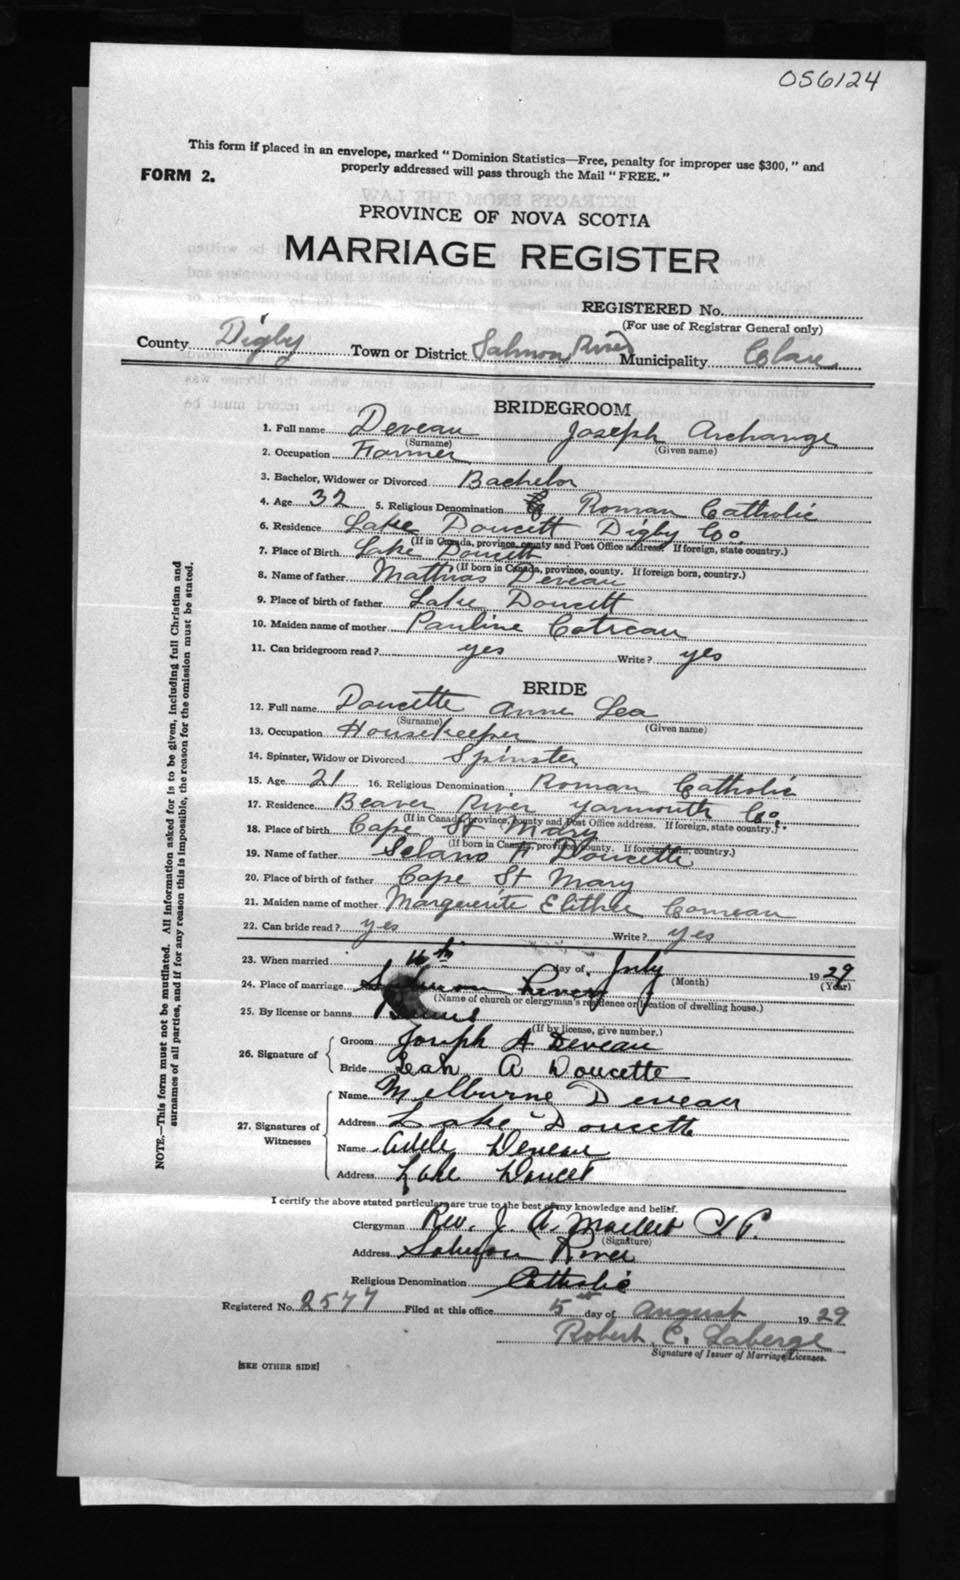 056124
This form if placed in an envelope, marked "Dominion Statistics—Free, penalty for improper use $300," and
properly addressed will pass through the Mail "FREE."
FORM 2.
PROVINCE OF NOVA SCOTIA
MARRIAGE REGISTER
REGISTERED No.
(For use of Registrar General only)
County Digby Town or District Salmon River Municipality Clare
BRIDEGROOM
1. Full name Deveau Joseph Archange
(Surname) (Given name)
2. Occupation Farmer
3. Bachelor, Widower or Divorced Bachelor
4. Age 32 5. Religious Denomination Roman Catholic
6. Residence Lake Doucett Digby Co.
(If in Canada, province, county and Post Office address. If foreign, state country.)
7. Place of Birth Lake Doucett
(If born in Canada, province, county. If foreign born, country.)
8. Name of father Mathias Deveau
9. Place of birth of father Lake Doucett
10. Maiden name of mother Pauline Cotreau
11. Can bridegroom read? yes Write? yes
BRIDE
12. Full name Doucette Anne Lea
(Surname) (Given name)
13. Occupation Housekeeper
14. Spinster, Widow or Divorced Spinster
15. Age 21 16. Religious Denomination Roman Catholic
17. Residence Beaver River Yarmouth Co.
(If in Canada, province, county and Post Office address. If foreign, state country.)
18. Place of birth Cape St Mary
(If born in Canada, province, county. If foreign born, country.)
19. Name of father A Doucette
20. Place of birth of father Cape St Mary
21. Maiden name of mother Marguerite Comeau
22. Can bride read? yes Write? yes
23. When married 16th day of July 1929
(Month) (Year)
24. Place of marriage Salmon River
(Name of church or clergyman's residence or location of dwelling house.)
25. By license or banns Banns
(If by license, give number.)
26. Signature of
Groom Joseph A Deveau
Bride Leah A Doucette
27. Signatures of Witnesses
Name Melburne Deveau
Address Lake Doucette
Name Adele Deveau
Address Lake Doucet
I certify the above stated particulars are true to the best of my knowledge and belief.
Clergyman Rev. J. A. P.P.
(Signature)
Address Salmon River
Religious Denomination Catholic
Registered No. 2577 Filed at this office 5th day of August 1929
Robert C. Laberge
Signature of Issuer of Marriage Licenses.
[SEE OTHER SIDE]
NOTE.—This form must not be mutilated. All information asked for is to be given, including full Christian and
surnames of all parties, and if for any reason this is impossible, the reason for the omission must be stated.